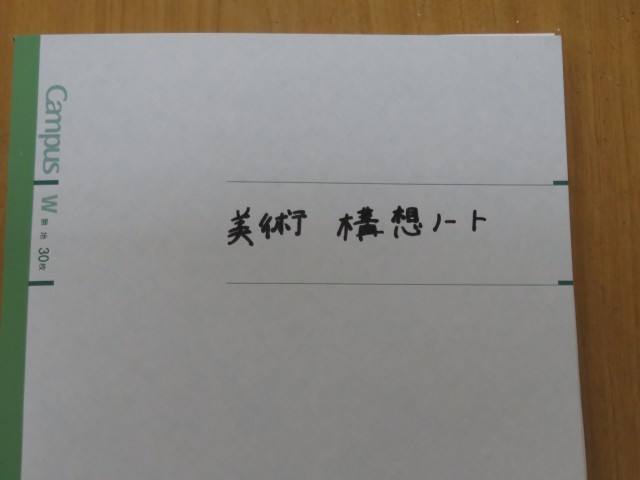 Campus
W 無地 30枚
美術 構想ノート